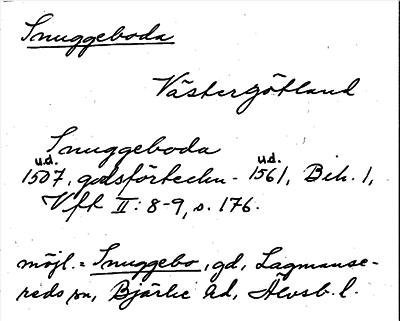 Snuggeboda
Västergötland
Snuggeboda
u.d. u.d.
1507, godsförteckn. 1561, Bih. 1,
Vft II: 8-9, s. 176.
möjl. = Snuggebo, gd, Lagmanse-
reds sn, Bjärke hd, Älvsb. l.